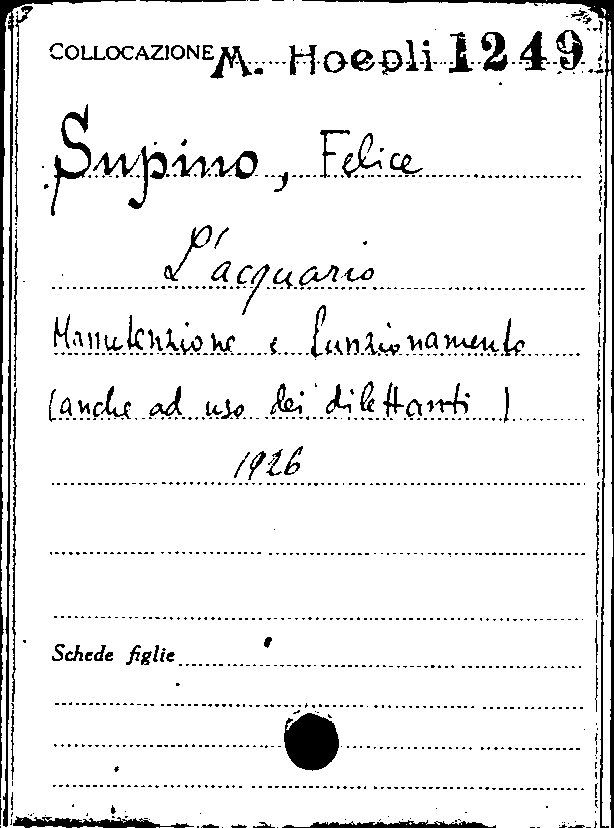 COLLOCAZIONE M. Hoepli 1249
Supino, Felice
L'acquario
Manutenzione e funzionamento
(anche ad uso dei dilettanti)
1926
Schede figlie